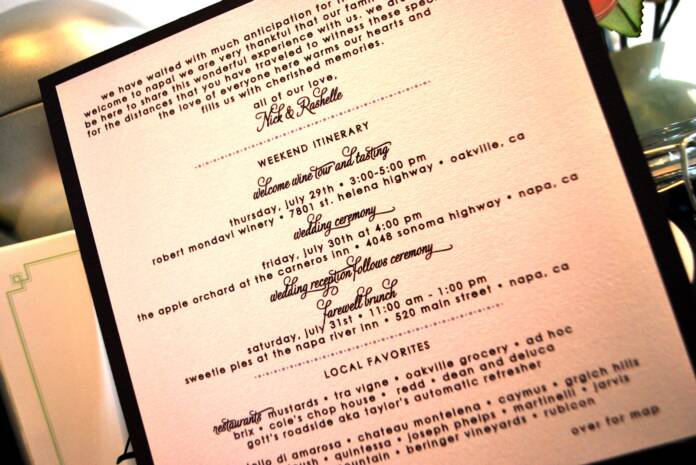 we have waited with much anticipation for
welcome to napa! we are very thankful that our
be here to share this wonderful experience with us. we are
for the distances that you have traveled to witness these
the love of everyone here warms our hearts and
fills us with cherished memories.
all of our love,
Nick & Rashelle
WEEKEND ITINERARY
welcome wine tour and tasting
thursday, july 29th • 3:00-5:00 pm
robert mondavi winery • 7801 st. helena highway • oakville, ca
wedding ceremony
friday, july 30th at 4:00 pm
the apple orchard at the carneros inn • 4048 sonoma highway • napa, ca
wedding reception follows ceremony
farewell brunch
saturday, july 31st • 11:00 am - 1:00 pm
sweetie pies at the napa river inn • 520 main street • napa, ca
LOCAL FAVORITES
restaurants mustards • tra vigne • oakville grocery • ad hoc
brix • cole's chop house • redd • dean and deluca
gott's roadside aka taylor's automatic refresher
di amarosa • chateau montelena • caymus • grgich hills
• quintessa • joseph phelps • martinelli • jarvis
• beringer vineyards • rubicon
over for map